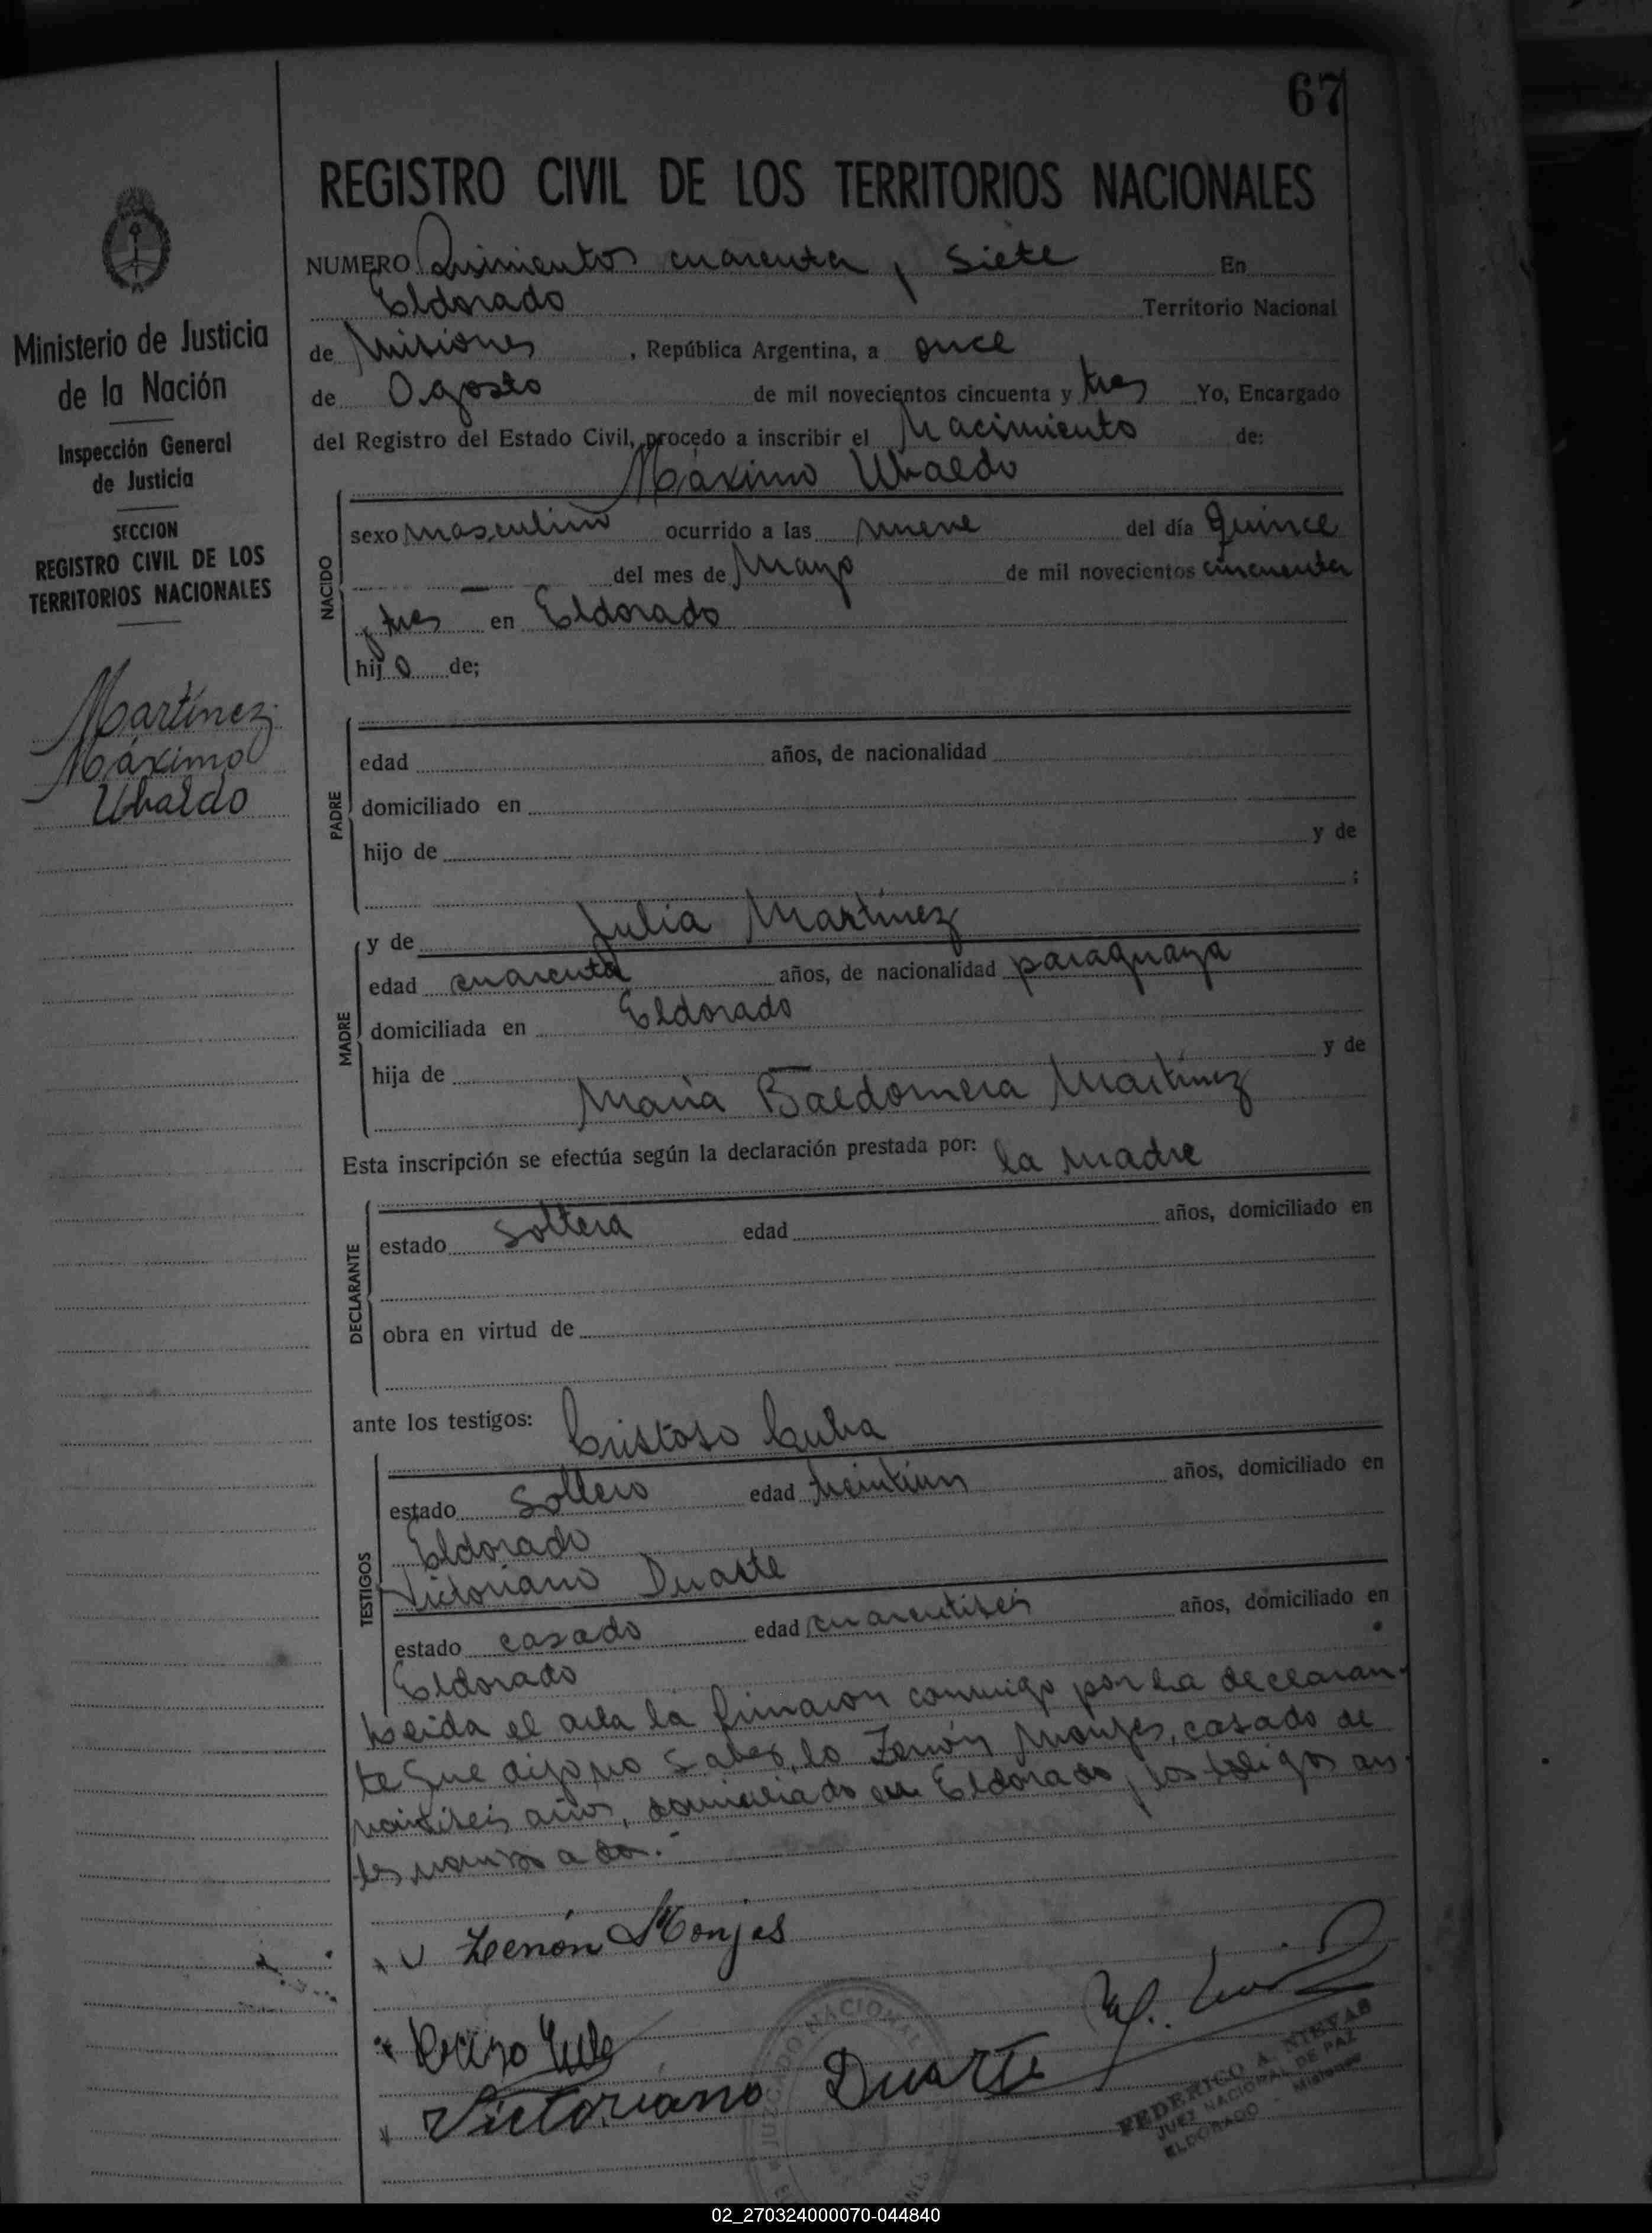 67
REGISTRO CIVIL DE LOS TERRITORIOS NACIONALES
Ministerio de Justicia
de la Nación
Inspección General
de Justicia
SECCION
REGISTRO CIVIL DE LOS
TERRITORIOS NACIONALES
Martínez
Máximo
Ubaldo
NUMERO Quinientos cuarenta y siete En
Eldorado Territorio Nacional
de Misiones, República Argentina, a once
de Agosto de mil novecientos cincuenta y tres Yo, Encargado
del Registro del Estado Civil, procedo a inscribir el Nacimiento de:
Máximo Ubaldo
NACIDO
sexo masculino ocurrido a las nueve del día quince
— del mes de Mayo de mil novecientos cincuenta
y tres en Eldorado
hijo de;
PADRE
edad años, de nacionalidad
domiciliado en
hijo de y de
;
MADRE
y de Julia Martínez
edad cuarenta años, de nacionalidad paraguaya
domiciliada en Eldorado
hija de — y de
María Baldomera Martínez
Esta inscripción se efectúa según la declaración prestada por: la madre
DECLARANTE
estado soltera edad años, domiciliado en
obra en virtud de
ante los testigos: Cuba
TESTIGOS
estado soltero edad años, domiciliado en
Eldorado
Victoriano Duarte
estado casado edad cuarentiseis años, domiciliado en
Eldorado
Leida el acta la firmaron conmigo por la declaran-
te que dijo no saber, lo Zenón Monjes, casado de
años, domiciliado en Eldorado y los testigos an-
tes nombrados.-
Zenón Monjes
Victoriano Duarte
JUZGADO NACIONAL
FEDERICO A. NIEVAS
JUEZ NACIONAL DE PAZ
ELDORADO - Misiones
02_270324000070-044840